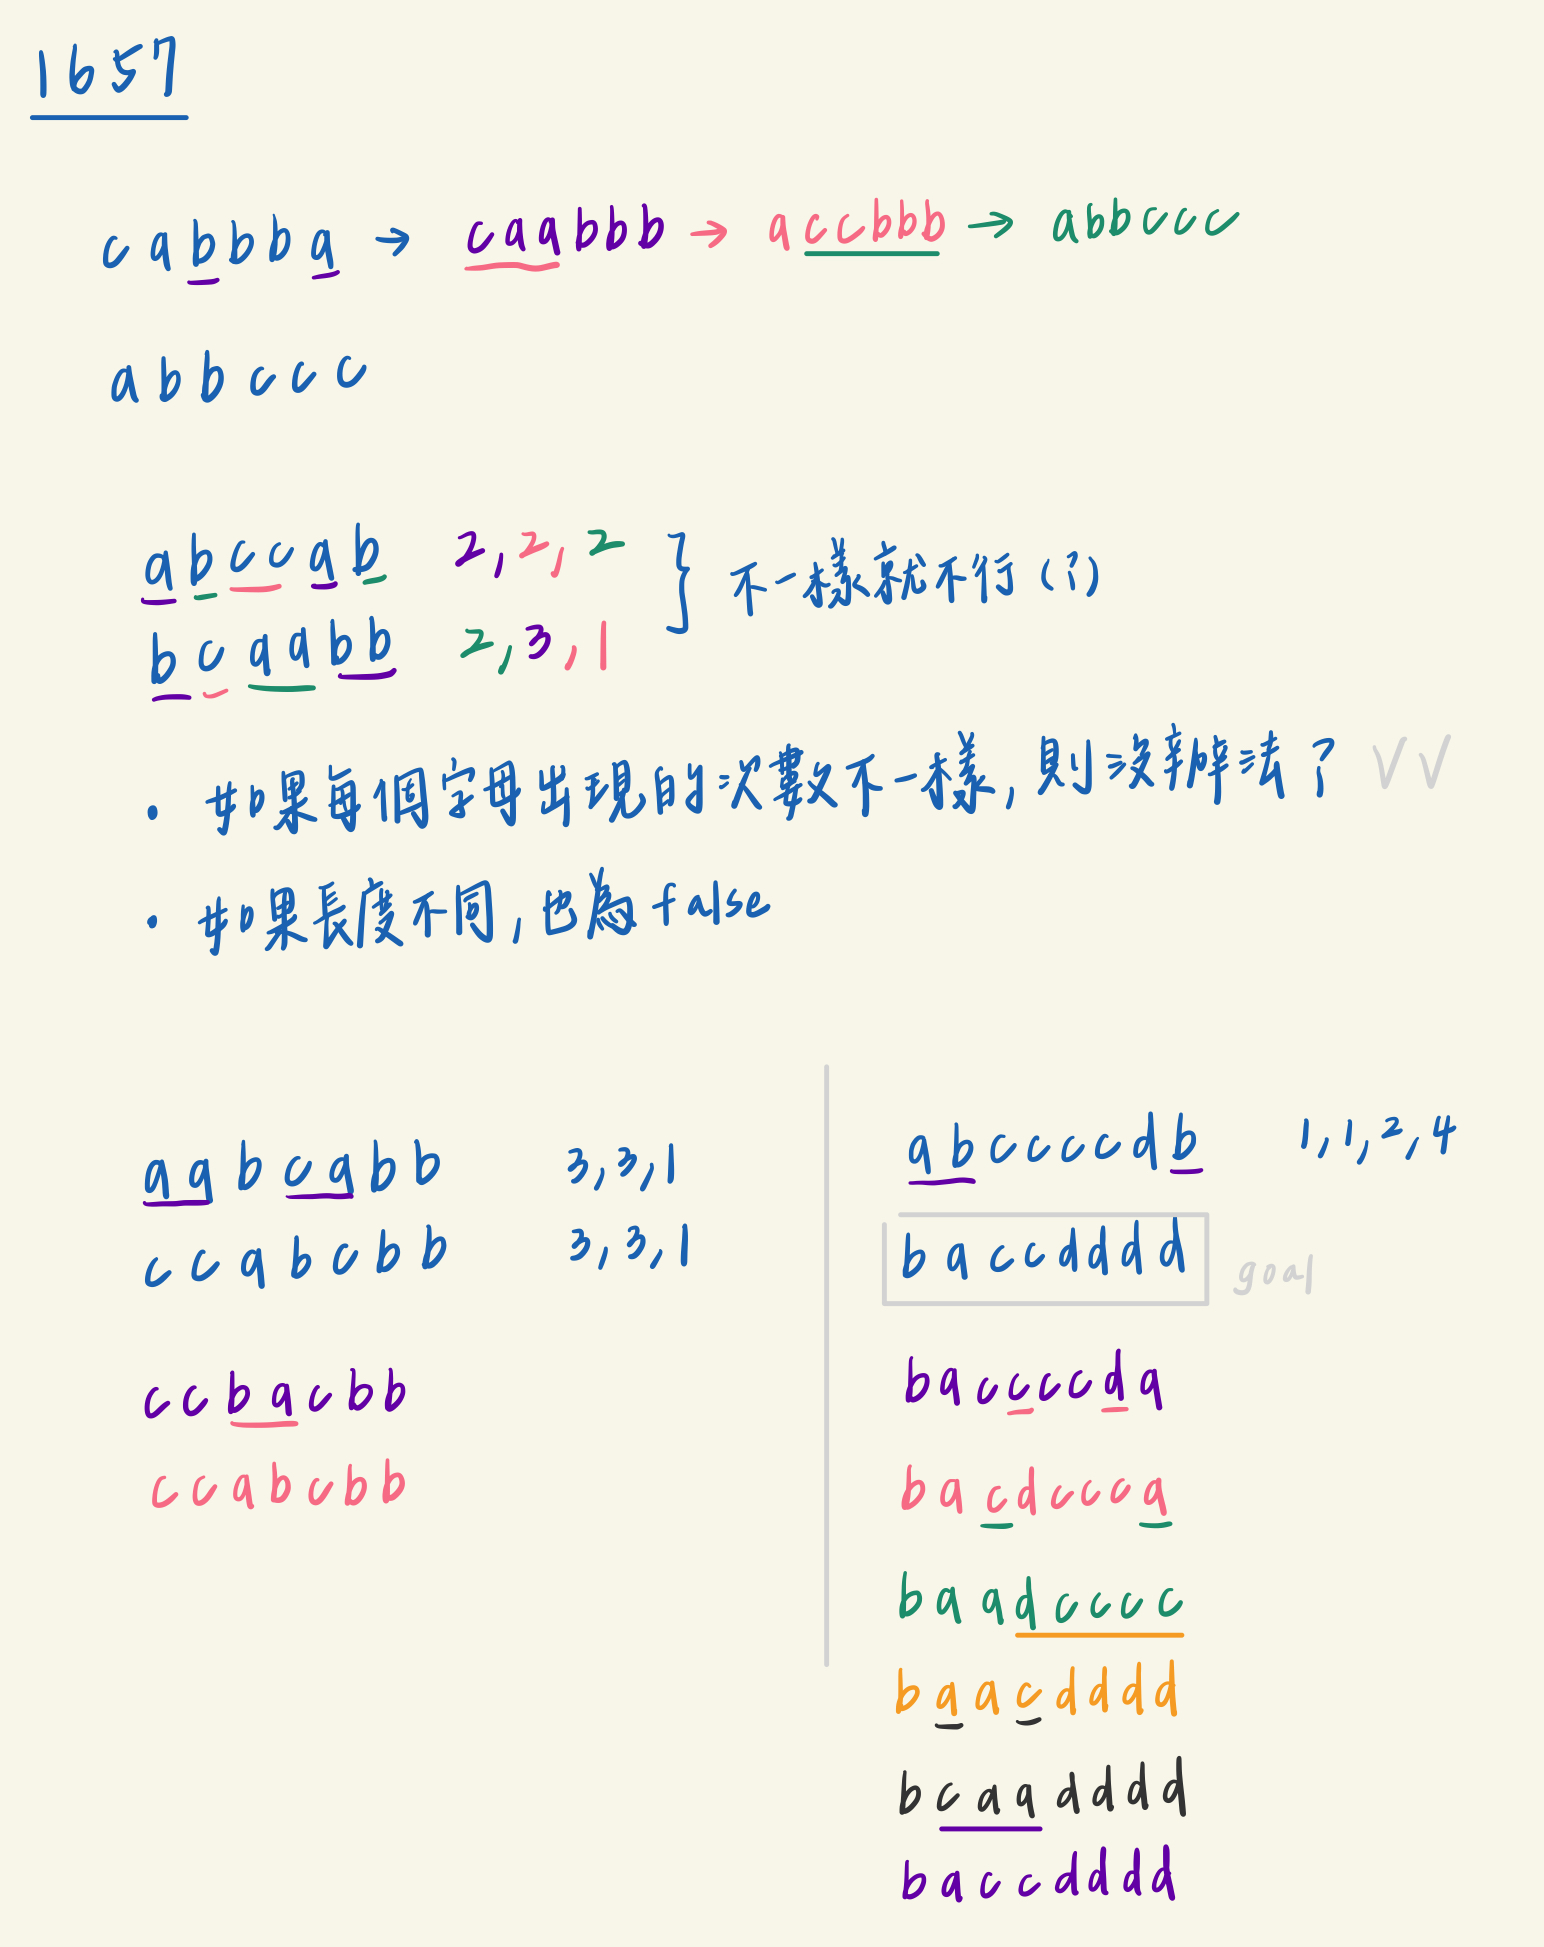 1657
cabbba → caabbb → accbbb → abbccc
abbccc
abccab 2,2,2
bcaabb 2,3,1
不一樣就不行(?)
• 如果每個字母出現的次數不一樣,則沒辦法? VV
• 如果長度不同,也為 false
aabcabb 3,3,1
ccabcbb 3,3,1
ccbacbb
ccabcbb
abccccdb 1,1,2,4
baccdddd goal
baccccda
bacdccca
baadcccc
baacdddd
bcaadddd
baccdddd